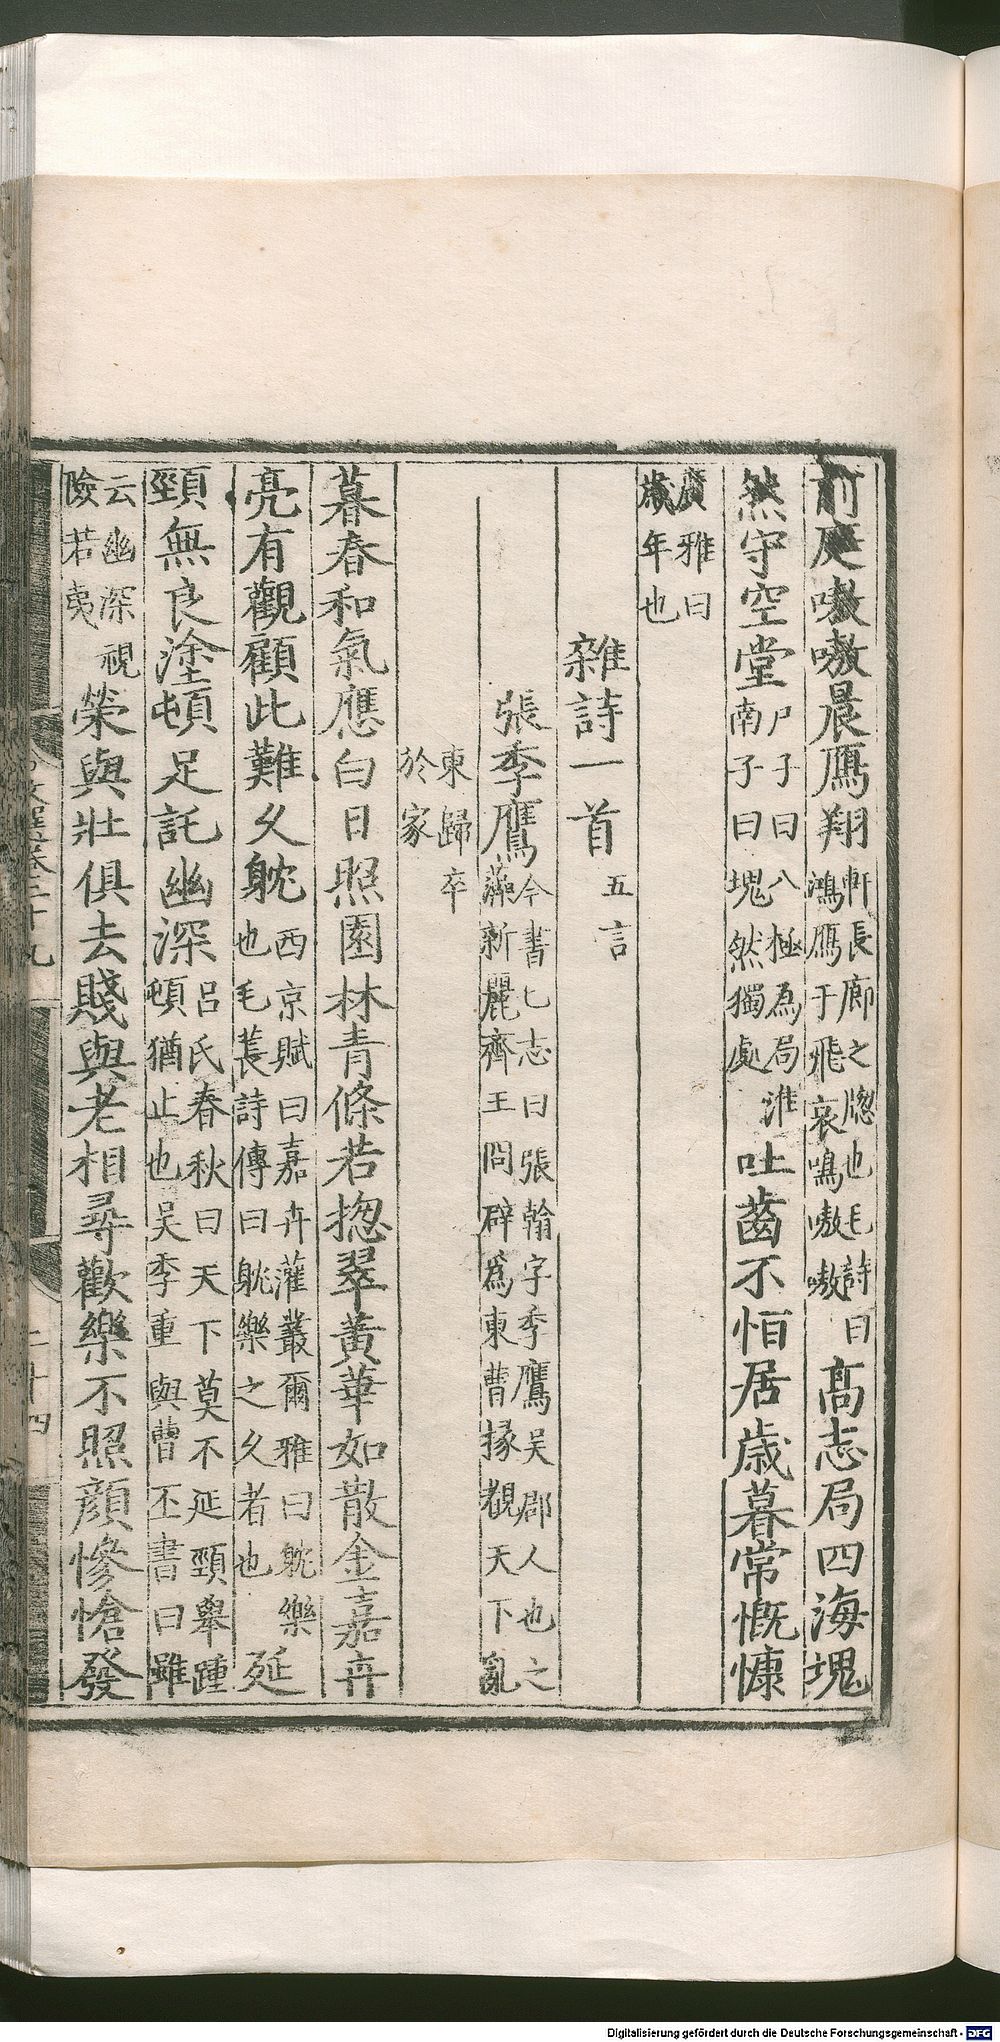 前庭嗷嗷晨鴈翔軒長廊之牕也毛詩曰鴻鴈于飛哀鳴嗷嗷高志局四海塊
然守空堂尸子曰八極為局淮南子曰塊然獨處吐齒不恬居歲暮常慨慷
廣雅曰歲年也
雜詩一首五言
張季鷹今書七志曰張翰字季鷹吳郡人也之藻新麗齊王冏辟為東曹掾覩天下亂
東歸卒於家
暮春和氣應白日照園林青條若揔翠黃華如散金嘉卉
亮有觀顧此難久躭西京賦曰嘉卉灌叢爾雅曰躭樂也毛萇詩傳曰躭樂之久者也延
頸無良塗頓足託幽深呂氏春秋曰天下莫不延頸舉踵頓猶止也吳季重與曹丕書曰雖
云幽深視險若夷榮與壯俱去賤與老相尋歡樂不照顏慘愴發
文選卷二十九
二十四
Digitalisierung gefördert durch die Deutsche Forschungsgemeinschaft - DFG